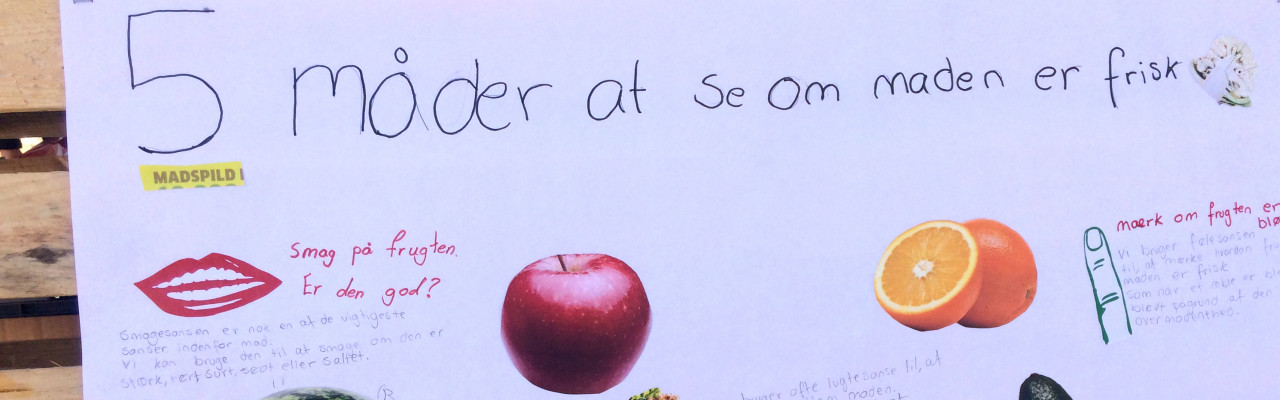 5 måder at se om maden er frisk
MADSPILD
Smag på frugten.
Er den god?
Smagesansen er nok en af de vigtigeste
sanser indenfor mad.
Vi kan bruge den til at smage om den er
stærk, surt, søot eller saltet.
mærk om frugten er
blø
Vi bruger følesansen
til, at mærke hvordan
maden er frisk
som når et æble er
blevt pågrund af den
overmodenthed.
bruger ofte lugtesanse til, at
maden.